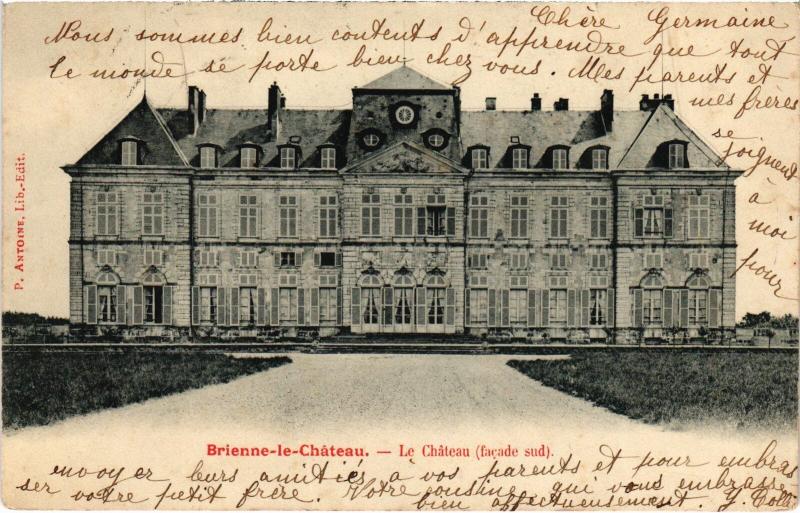 Chère Germaine
Nous sommes bien contents d'apprendre que tout
le monde se porte bien chez vous. Mes parents et
mes frères
se
joignent
à
moi
pour
P. ANTOINE, Lib.-Edit.
Brienne-le-Château. — Le Château (façade sud).
envoyer leurs amitiés à vos parents et pour embras
ser votre petit frère. Votre cousine qui vous embrasse
bien affectueusement.